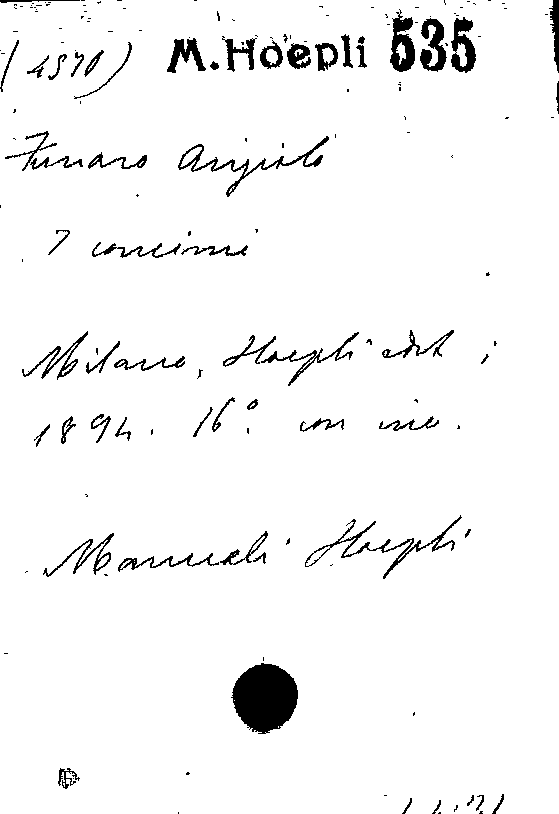 (4570) M. Hoepli 535
Funaro Angiolo
I concimi
Milano, Hoepli edit;
1894. 16º. con inc.
Manuali Hoepli